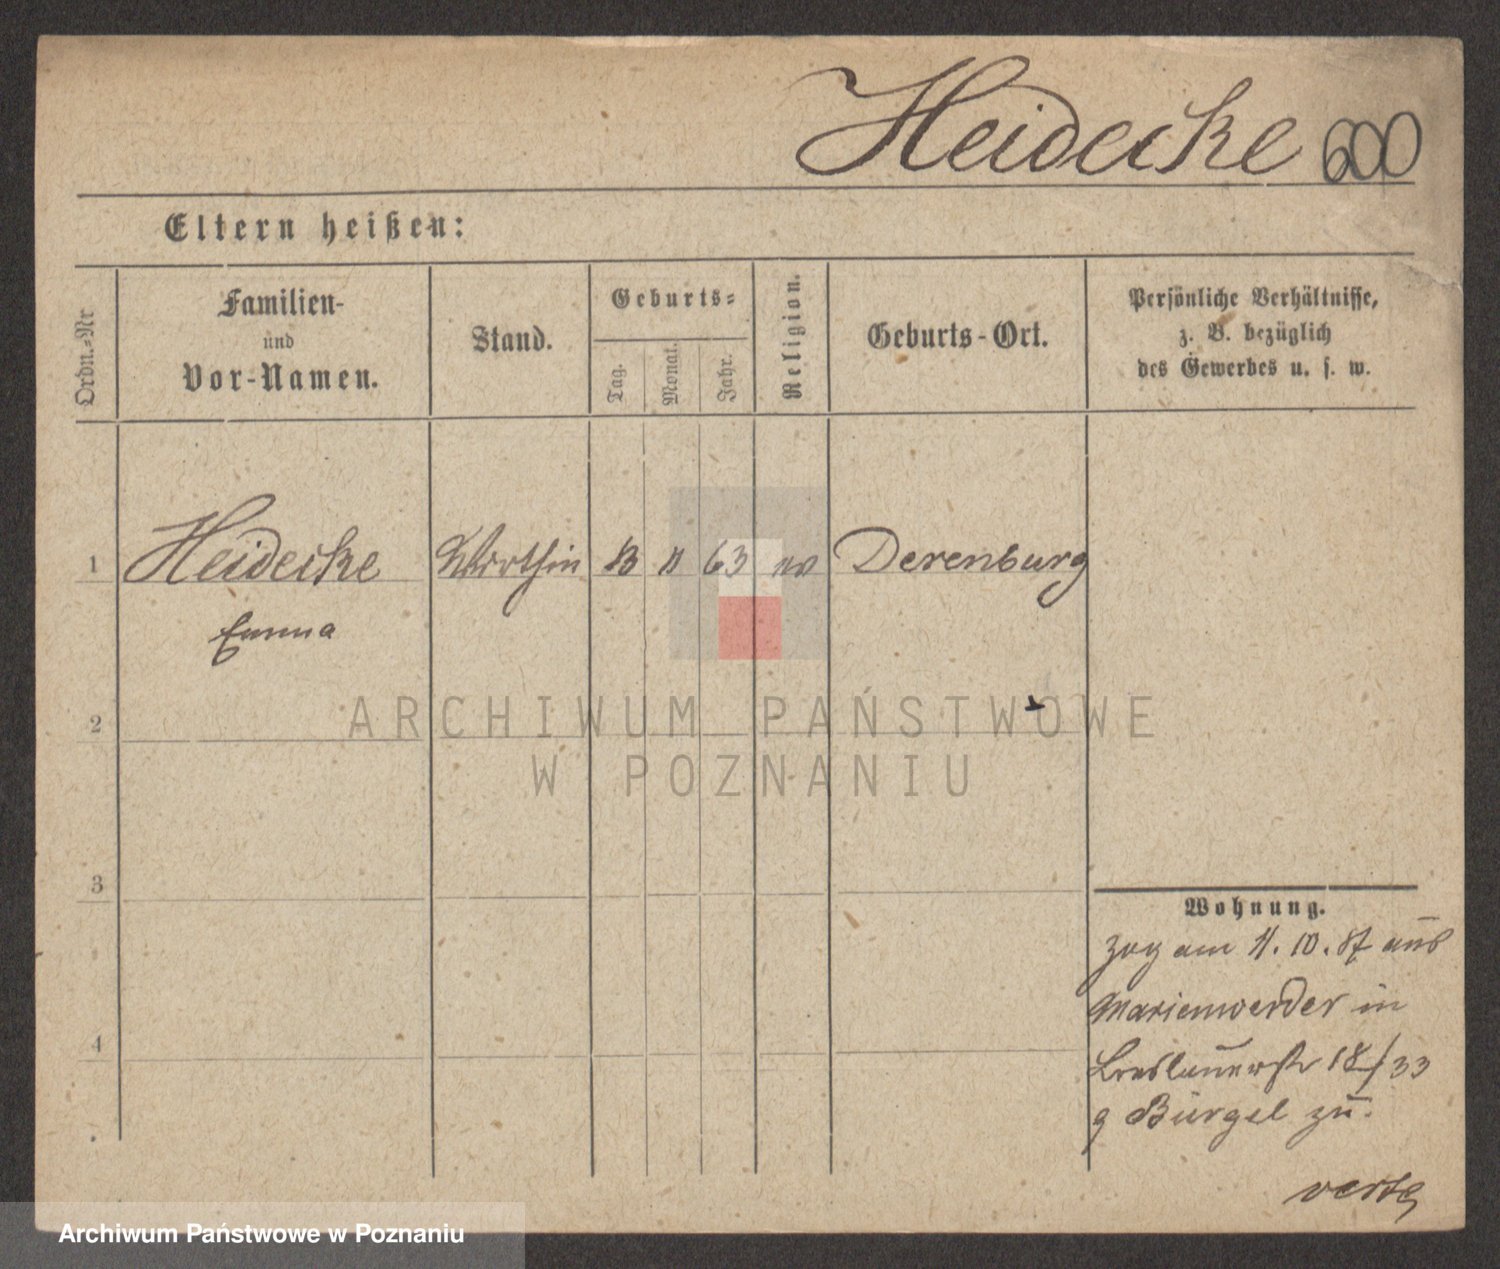 Heidecke 600
Eltern heißen:
Ordn.-Nr
Familien-
und
Vor-Namen.
Stand.
Geburts-
Tag.
Monat.
Jahr.
Religion.
Geburts-Ort.
Persönliche Verhältnisse,
z. B. bezüglich
des Gewerbes u. s. w.
1 Heidecke Wirthin 63 ev Derenburg
Emma
2
3
4
Wohnung.
zog am 10. 87 aus
Marienwerder in
Breslauerstr 18/33
Bürgel zu.
verte
ARCHIWUM PAŃSTWOWE
W POZNANIU
Archiwum Państwowe w Poznaniu